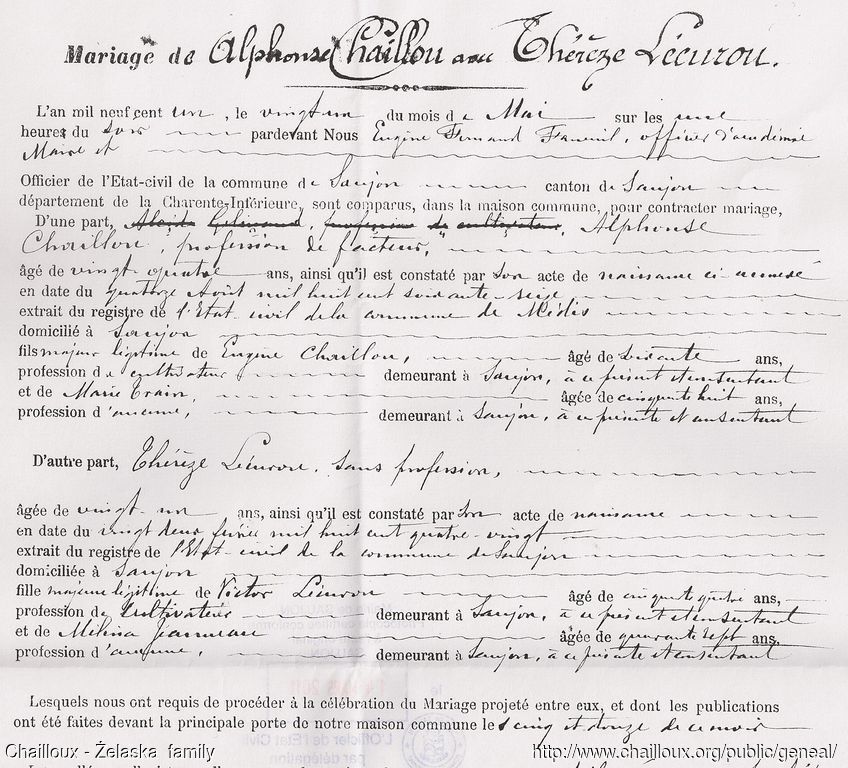 Mariage de Alphonse Chaillou avec Thérèze Lécurou.
L'an mil neuf cent un, le vingt un du mois de Mai sur les une
heures du soir pardevant Nous Eugène Fernand Faneuil, officier d'académie
Maire et
Officier de l'Etat-civil de la commune de Saujon canton de Saujon
département de la Charente-Inférieure, sont comparus, dans la maison commune, pour contracter mariage,
D'une part, profession de cultivateur, Alphonse
Chaillou, profession de facteur,
âgé de vingt-quatre ans, ainsi qu'il est constaté par son acte de naissance ci-annexé
en date du quatorze Août mil huit cent soixante-seize
extrait du registre de l'Etat civil de la commune de Médis
domicilié à Saujon
fils majeur légitime de Eugène Chaillou, âgé de soixante ans,
profession de cultivateur demeurant à Saujon, à ce présent et consentant
et de Marie Train, âgée de cinquante huit ans,
profession d'aucune, demeurant à Saujon, à ce présente et consentant
D'autre part, Thérèze Lécurou, sans profession,
âgée de vingt-un ans, ainsi qu'il est constaté par son acte de naissance
en date du vingt deux février mil huit cent quatre-vingt
extrait du registre de l'Etat-civil de la commune de Saujon
domiciliée à Saujon
fille majeure légitime de Victor Lécurou âgé de cinquante quatre ans,
profession de Cultivateur demeurant à Saujon, à ce présent et consentant
et de Mélina Jeanneau âgée de quarante sept ans,
profession d'aucune, demeurant à Saujon, à ce présente et consentant
Lesquels nous ont requis de procéder à la célébration du Mariage projeté entre eux, et dont les publications
ont été faites devant la principale porte de notre maison commune les cinq et douze de ce mois
Chailloux - Żelaska family
http://www.chailloux.org/public/geneal/